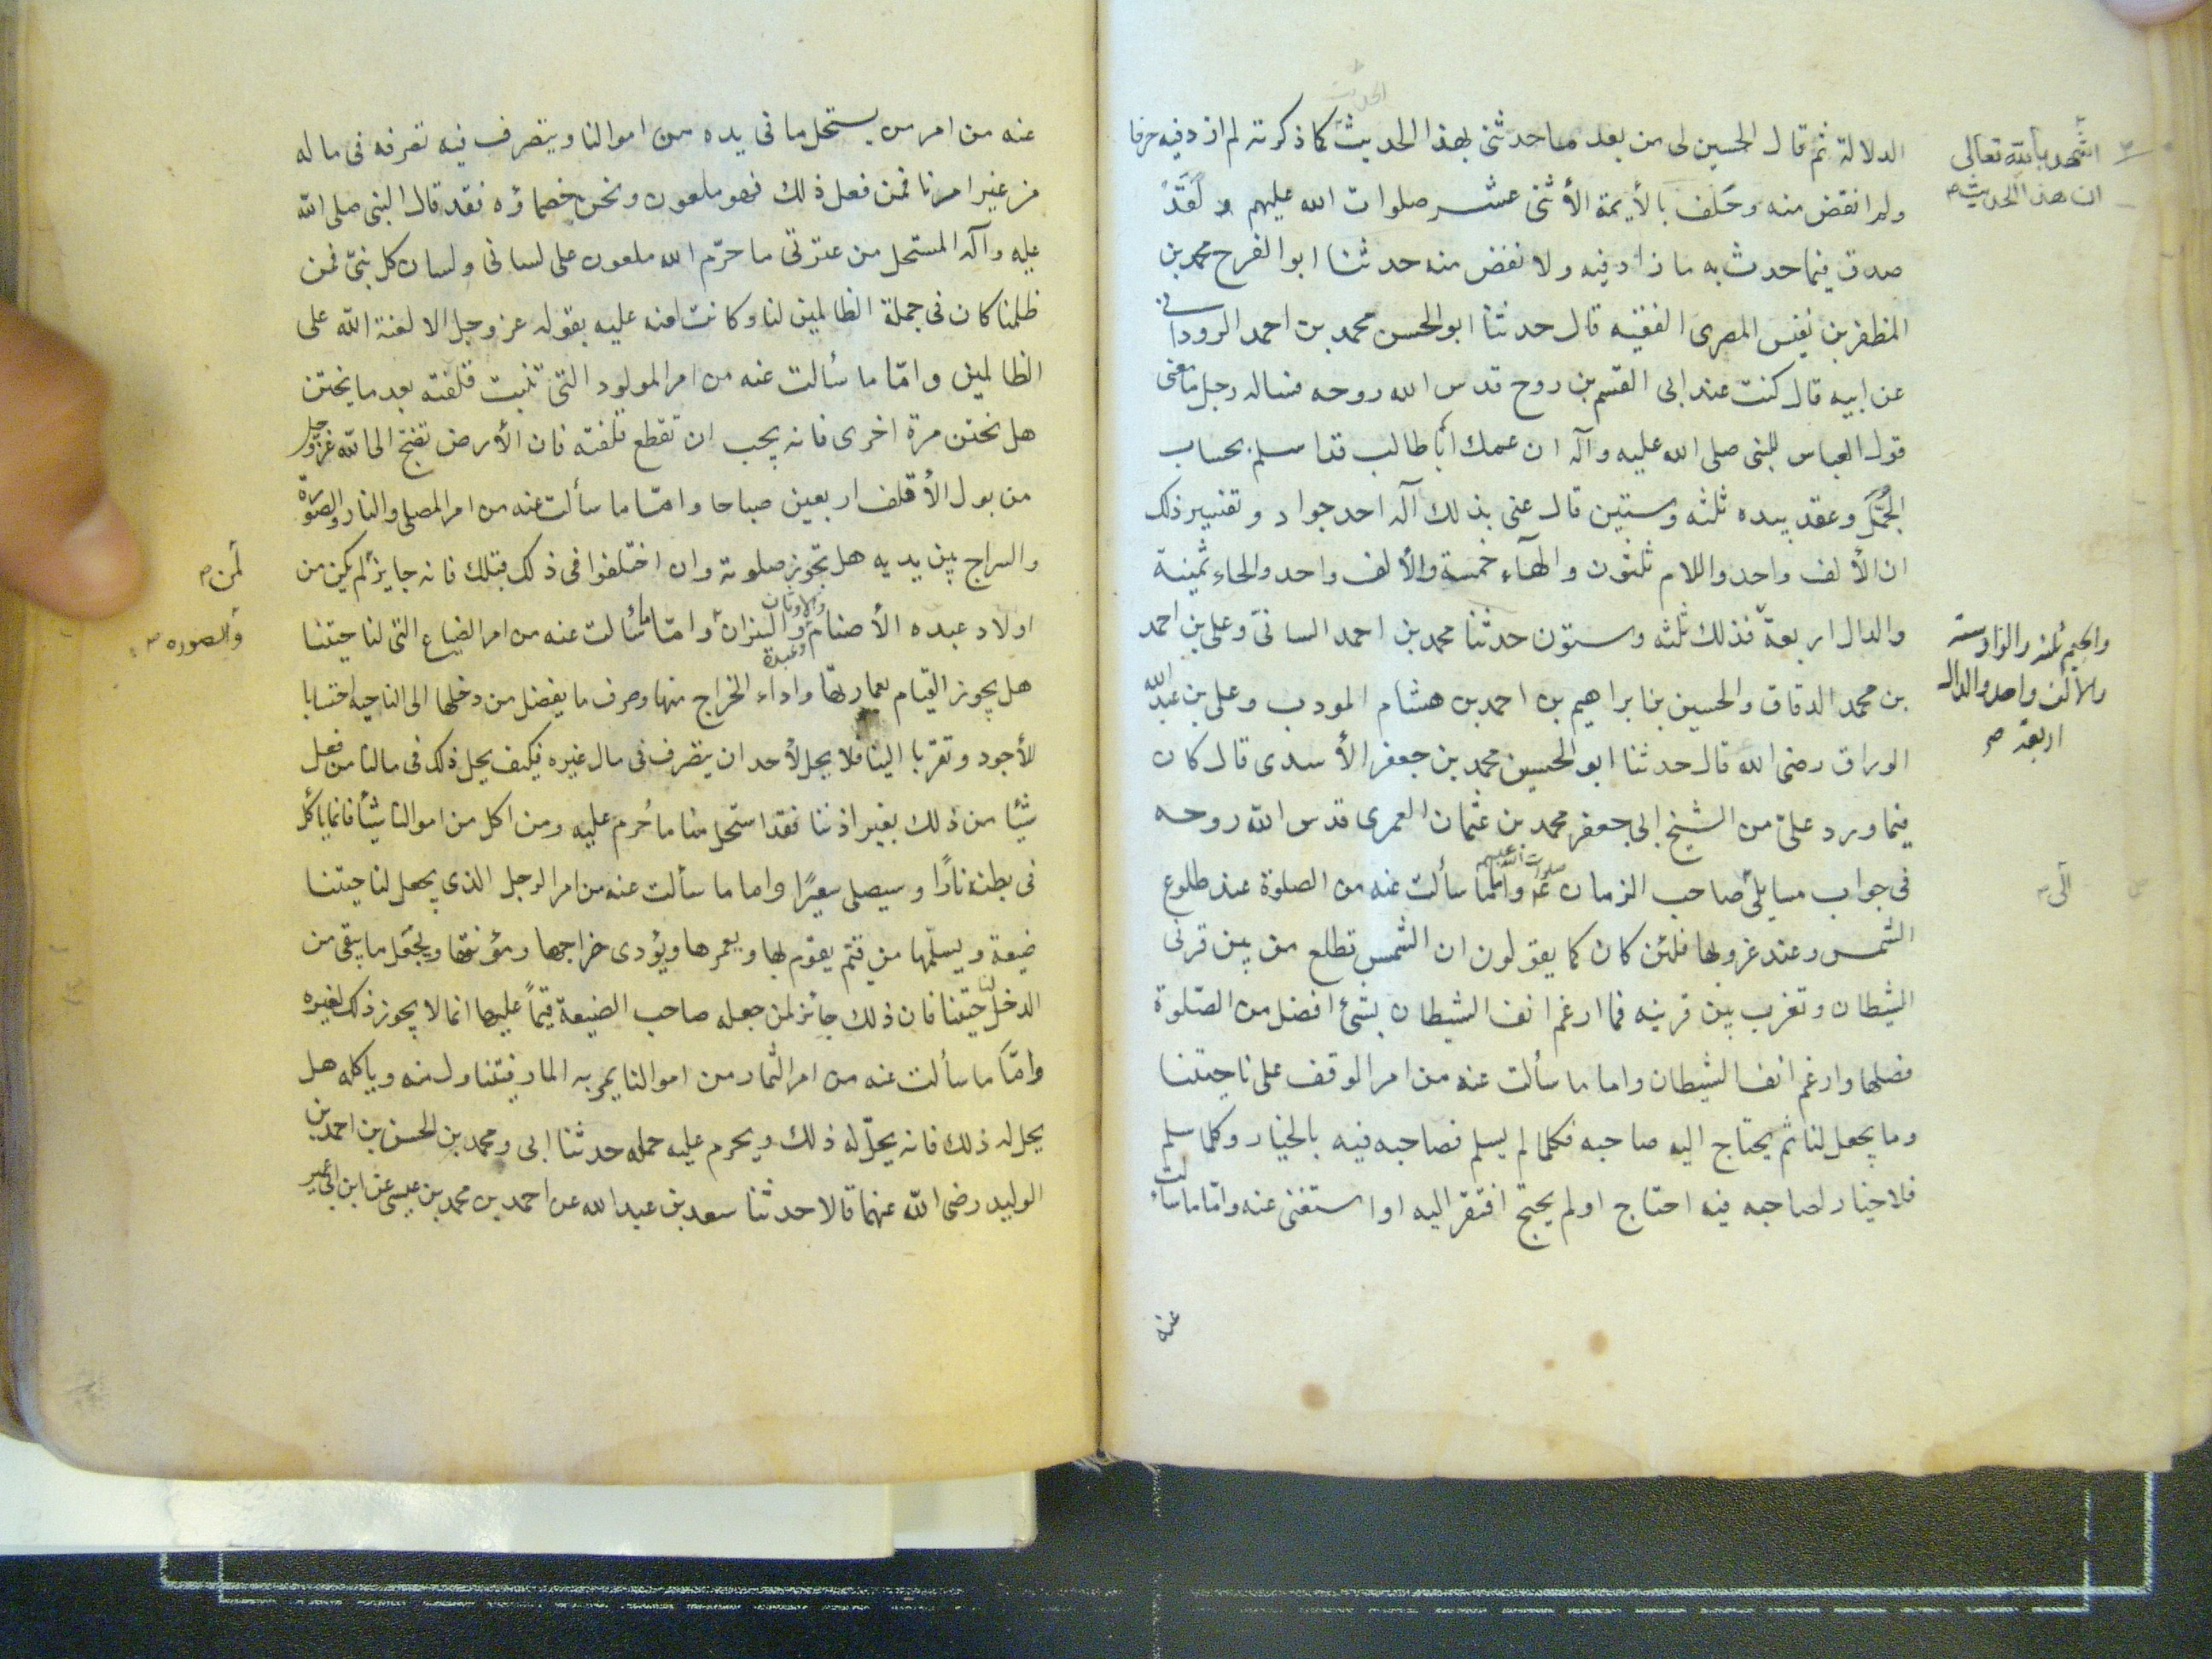 الدلالة ثم قال الحسين لى من بعد ما حدثنى بهذا الحديث كما ذكرته لم ازد فيه حرفا
ولم انقض منه وحَلف بالأيمة الأثنى عشر صلوات الله عليهم و لَقَدْ
صدق فيما حدث به ما زاد فيه ولا نقض منه حدثنا ابو الفرح محمد بن
المظفر بن نفيس المصرى الفقيه قال حدثنا ابو الحسن محمد بن احمد الرودانى
عن ابيه قال كنت عند ابى القسم بن روح قدس الله روحه فساله رجل ما معنى
قول العباس للنبى صلى الله عليه وآله ان عمك أبا طالب قد اسلم بحساب
الجُمَّل وعقد بيده ثلثه وستين قال عنى بذلك آله احد جواد و تفسير ذلك
ان الألف واحد واللام ثلثون والهآء خمسة والألف واحد والحاء ثمينة
والدال اربعة فذلك ثلثه وستون حدثنا محمد بن احمد السانىّ وعلى بن احمد
بن محمد الدقاق والحسين بن ابراهيم بن احمد بن هشام المودب وعلى بن عبد الله
الوراق رضى الله قال حدثنا ابو الحسين محمد بن جعفر الأسدى قال كان
فيما ورد علىّ من الشيخ ابى جعفر محمد بن عثمان العمرى قدس الله روحه
فى جواب مسايلى صاحب الزمان صلوات الله عليهم واما ما سألت عنه من الصلوة عند طلوع
الشمس وعند غروبها فلئن كان كما يقولون ان الشمس تطلع من بين قرنى
الشيطان وتغرب بين قرنيه فما ارغم انف الشيطان بشئ افضل من الصّلوة
فصلها وارغم انف الشيطان واما ما سألت عنه من امر الوقف على ناحيتنا
وما يجعل لنا ثم يحتاج اليه صاحبه فكلما لم يسلم فصاحبه فيه بالخيار وكلما سلم
فلا خيار لصاحبه فيه احتاج او لم يحتج افتقر اليه او استغنى عنه وامّا ما سألت
عنه
الحديث
اشهد بالله تعالى
ان هذا الحديث
والجيم ثلثه والواو سته
والألف واحد والدال
اربعة صح
الى
عنه من امر من يستحل ما فى يده من اموالنا ويتصرف فيه تصرفه فى ماله
من غير امرنا فمن فعل ذلك فهو ملعون ونحن خصماؤه فقد قال النبى صلى الله
عليه وآله المستحل من عترتى ما حرّم الله ملعون على لسانى ولسان كل نبىّ فمن
ظلمنا كان فى جملة الظالمين لنا وكانت لعنه عليه بقوله عز وجل الا لعنة الله على
الظالمين وامّا ما سألت عنه من امر المولود التى تنبت قلفته بعد ما يختن
هل يختن مرة اخرى فانه يجب ان تقطع قلفته فان الأرض تضج الى الله عز وجل
من بول الأقلف اربعين صباحا وامّا ما سألت عنه من امر المصلى والنار والصورة
والسراج بين يديه هل تجوز صلوته وان اختلفوا فى ذلك قبلك فانه جايز لم يكن من
اولاد عبده الأصنام والاوثان وعبدة النيران وامّا ما سألت عنه من امر الضياع التى لنا حيتنا
هل يجوز القيام بعمارتها واداء الخراج منها وصرف ما يفضل من دخلها الى الناحيه احتسابا
للأجود وتقربا الينا فلا يحل لأحد ان يتصرف فى مال غيره فكيف يحل ذلك فى مالنا من فعل
شيئا من ذلك بغير اذننا فقد استحل منا ما حُرم عليه ومن اكل من اموالنا شيئا فانما يأكل
فى بطنه نارًا وسيصلى سعيرًا واما ما سألت عنه من امر الرجل الذى يجعل لنا حيتنا
ضيعة ويسلّمها من قيّم يقوم بها ويعمرها ويؤدى خراجها ومؤنتها ويجعل ما يبقى من
الدخل لنا حيتنا فان ذلك جائز لمن جعله صاحب الضيعة قيمّاً عليها انما لا يجوز ذلك لغيره
وامّا ما سألت عنه من امر الثمار من اموالنا يمر به المار فيتناول منه وياكله هل
يحل له ذلك فانه يحلّ له ذلك ويحرم عليه حمله حدثنا ابى ومحمد بن الحسن بن احمد بن
الوليد رضى الله عنهما قالا حدثنا سعد بن عبد الله عن احمد بن محمد بن عيسى عن ابن ابى عمير
لمن
والصوره